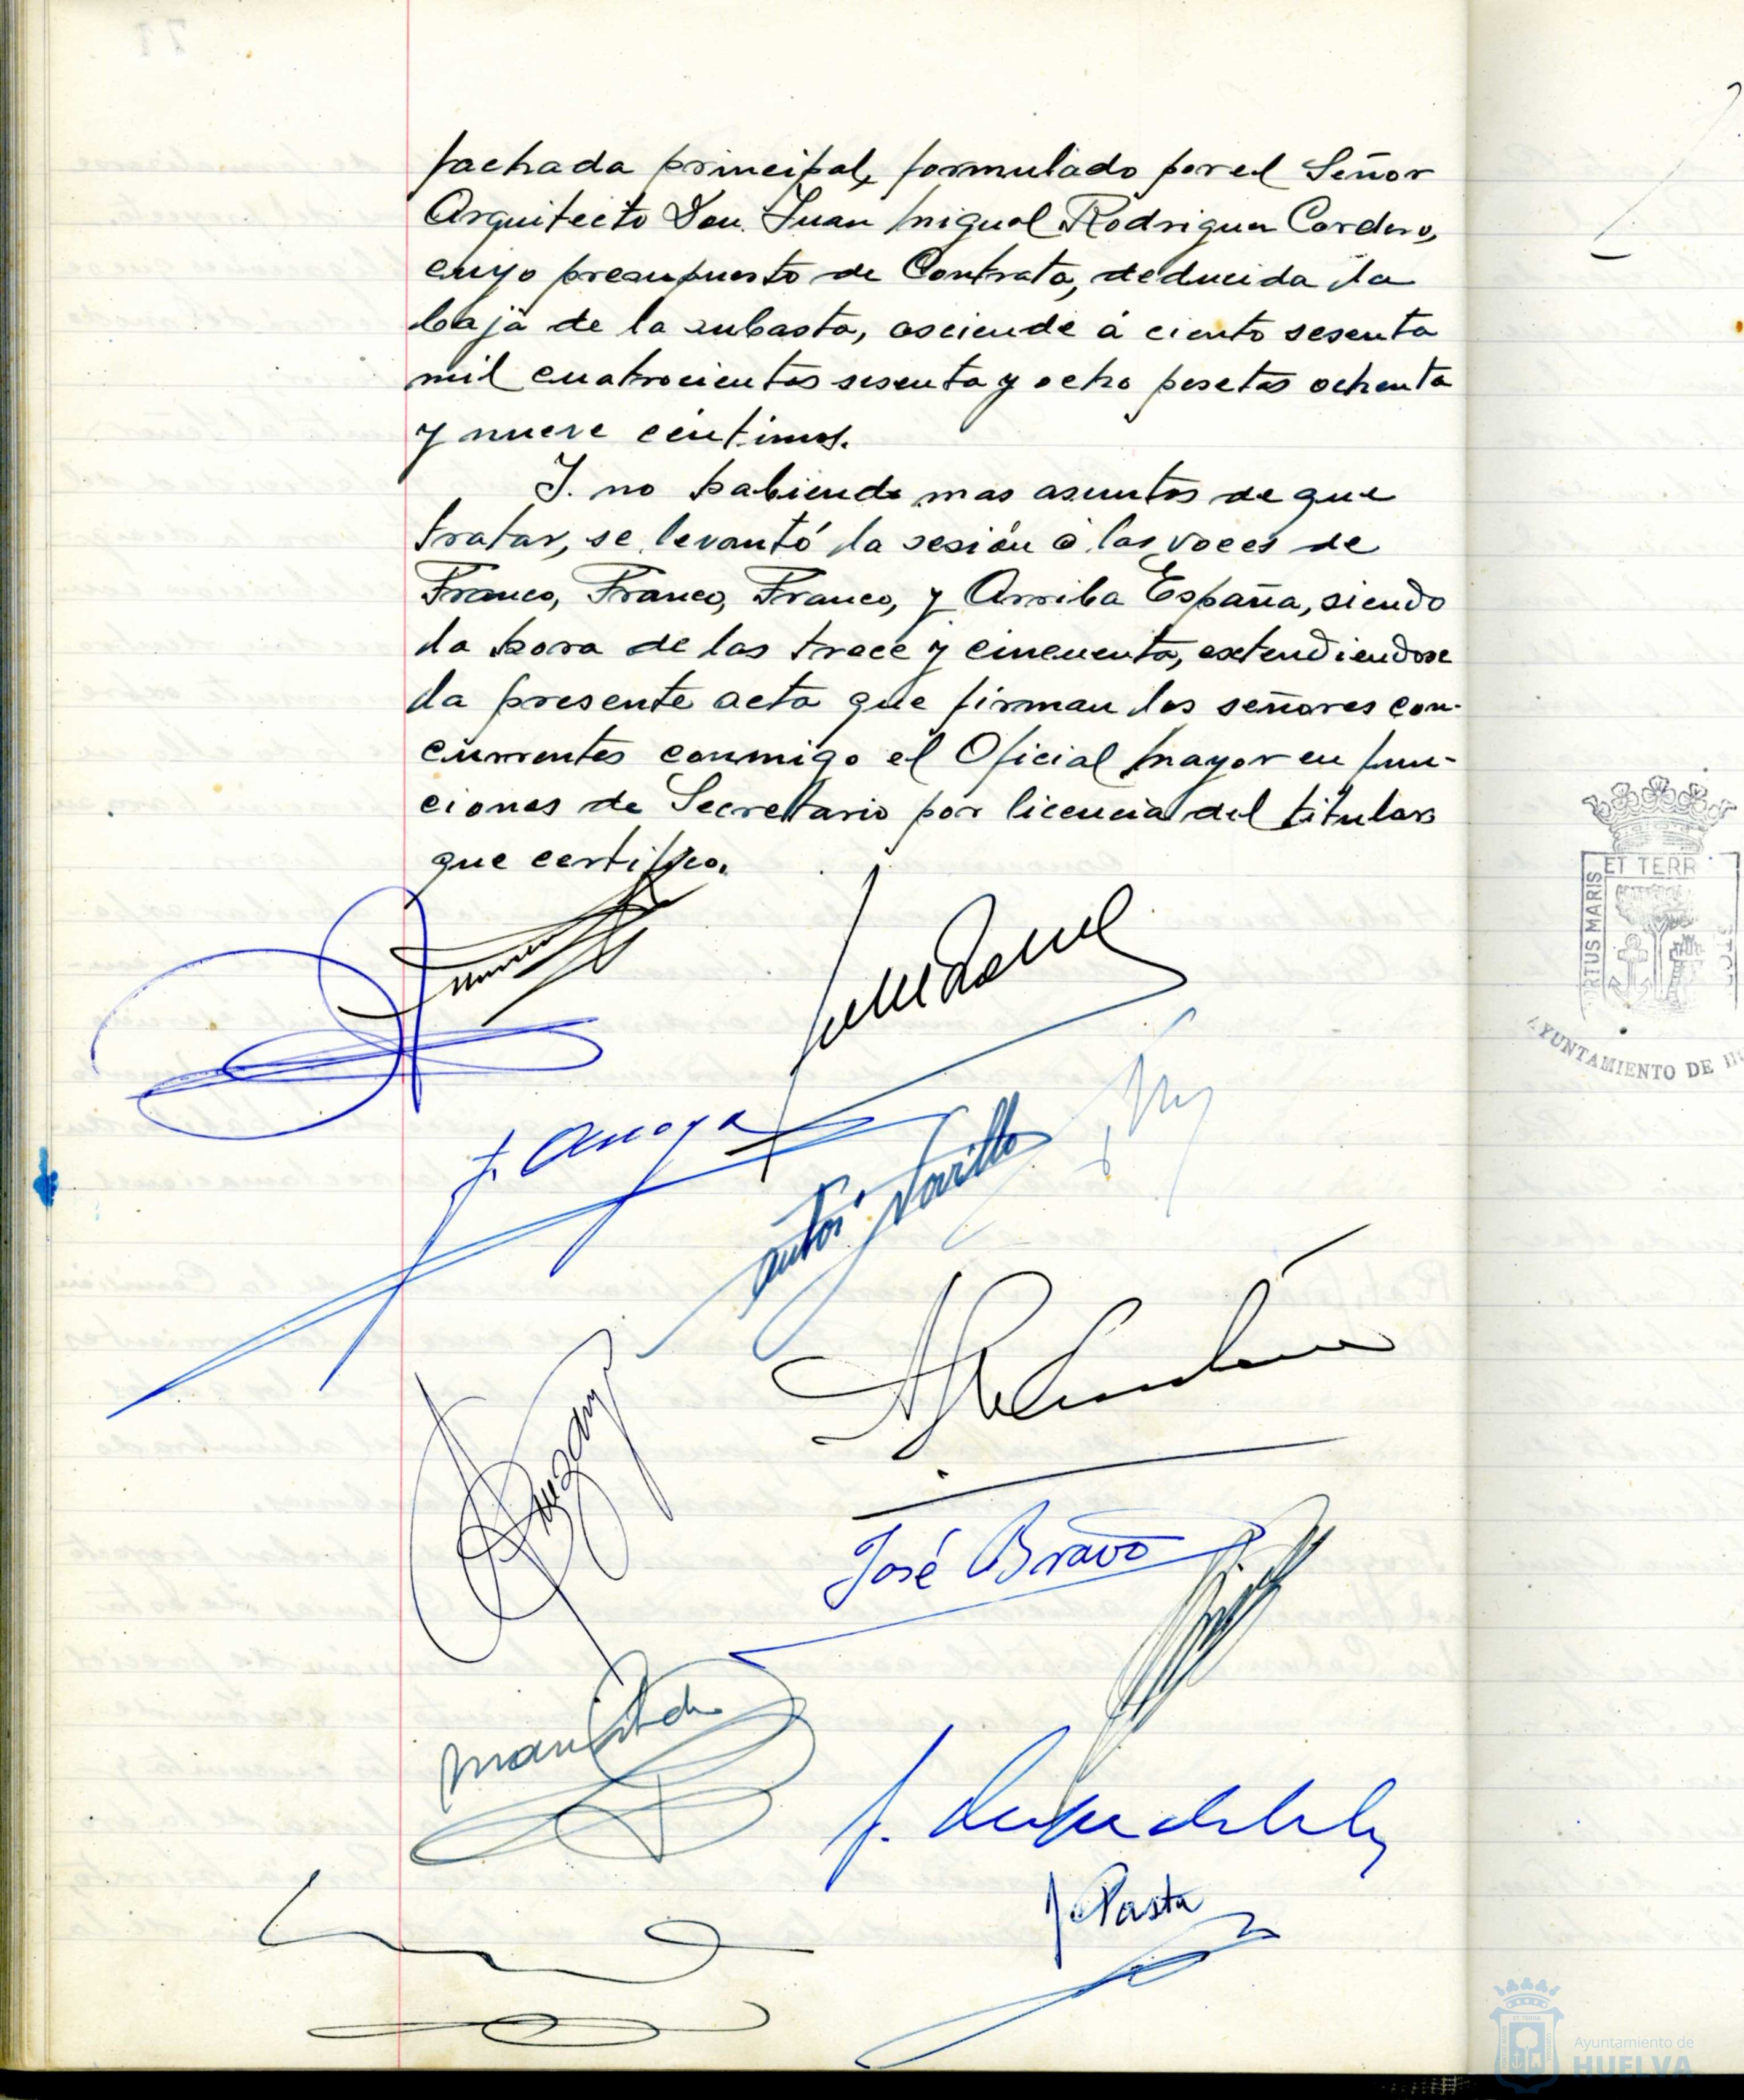 fachada principal, formulado por el Señor
Arquitecto Don Juan Miguel Rodriguez Cordero,
cuyo presupuesto de Contrata, deducida la
baja de la subasta, asciende á ciento sesenta
mil cuatrocientos sesenta y ocho pesetas ochenta
y nueve céntimos.
Y. no habiendo mas asuntos de que
tratar, se levantó la sesión á las voces de
Franco, Franco, Franco, y Arriba España, siendo
la hora de las trece y cincuenta, extendiendose
la presente acta que firman los señores con-
currentes conmigo el Oficial Mayor en fun-
ciones de Secretario por licencia del titular
que certifico.
José Bravo
ET TERR
ORTUS MARIS
AYUNTAMIENTO DE
Ayuntamiento de
HUELVA